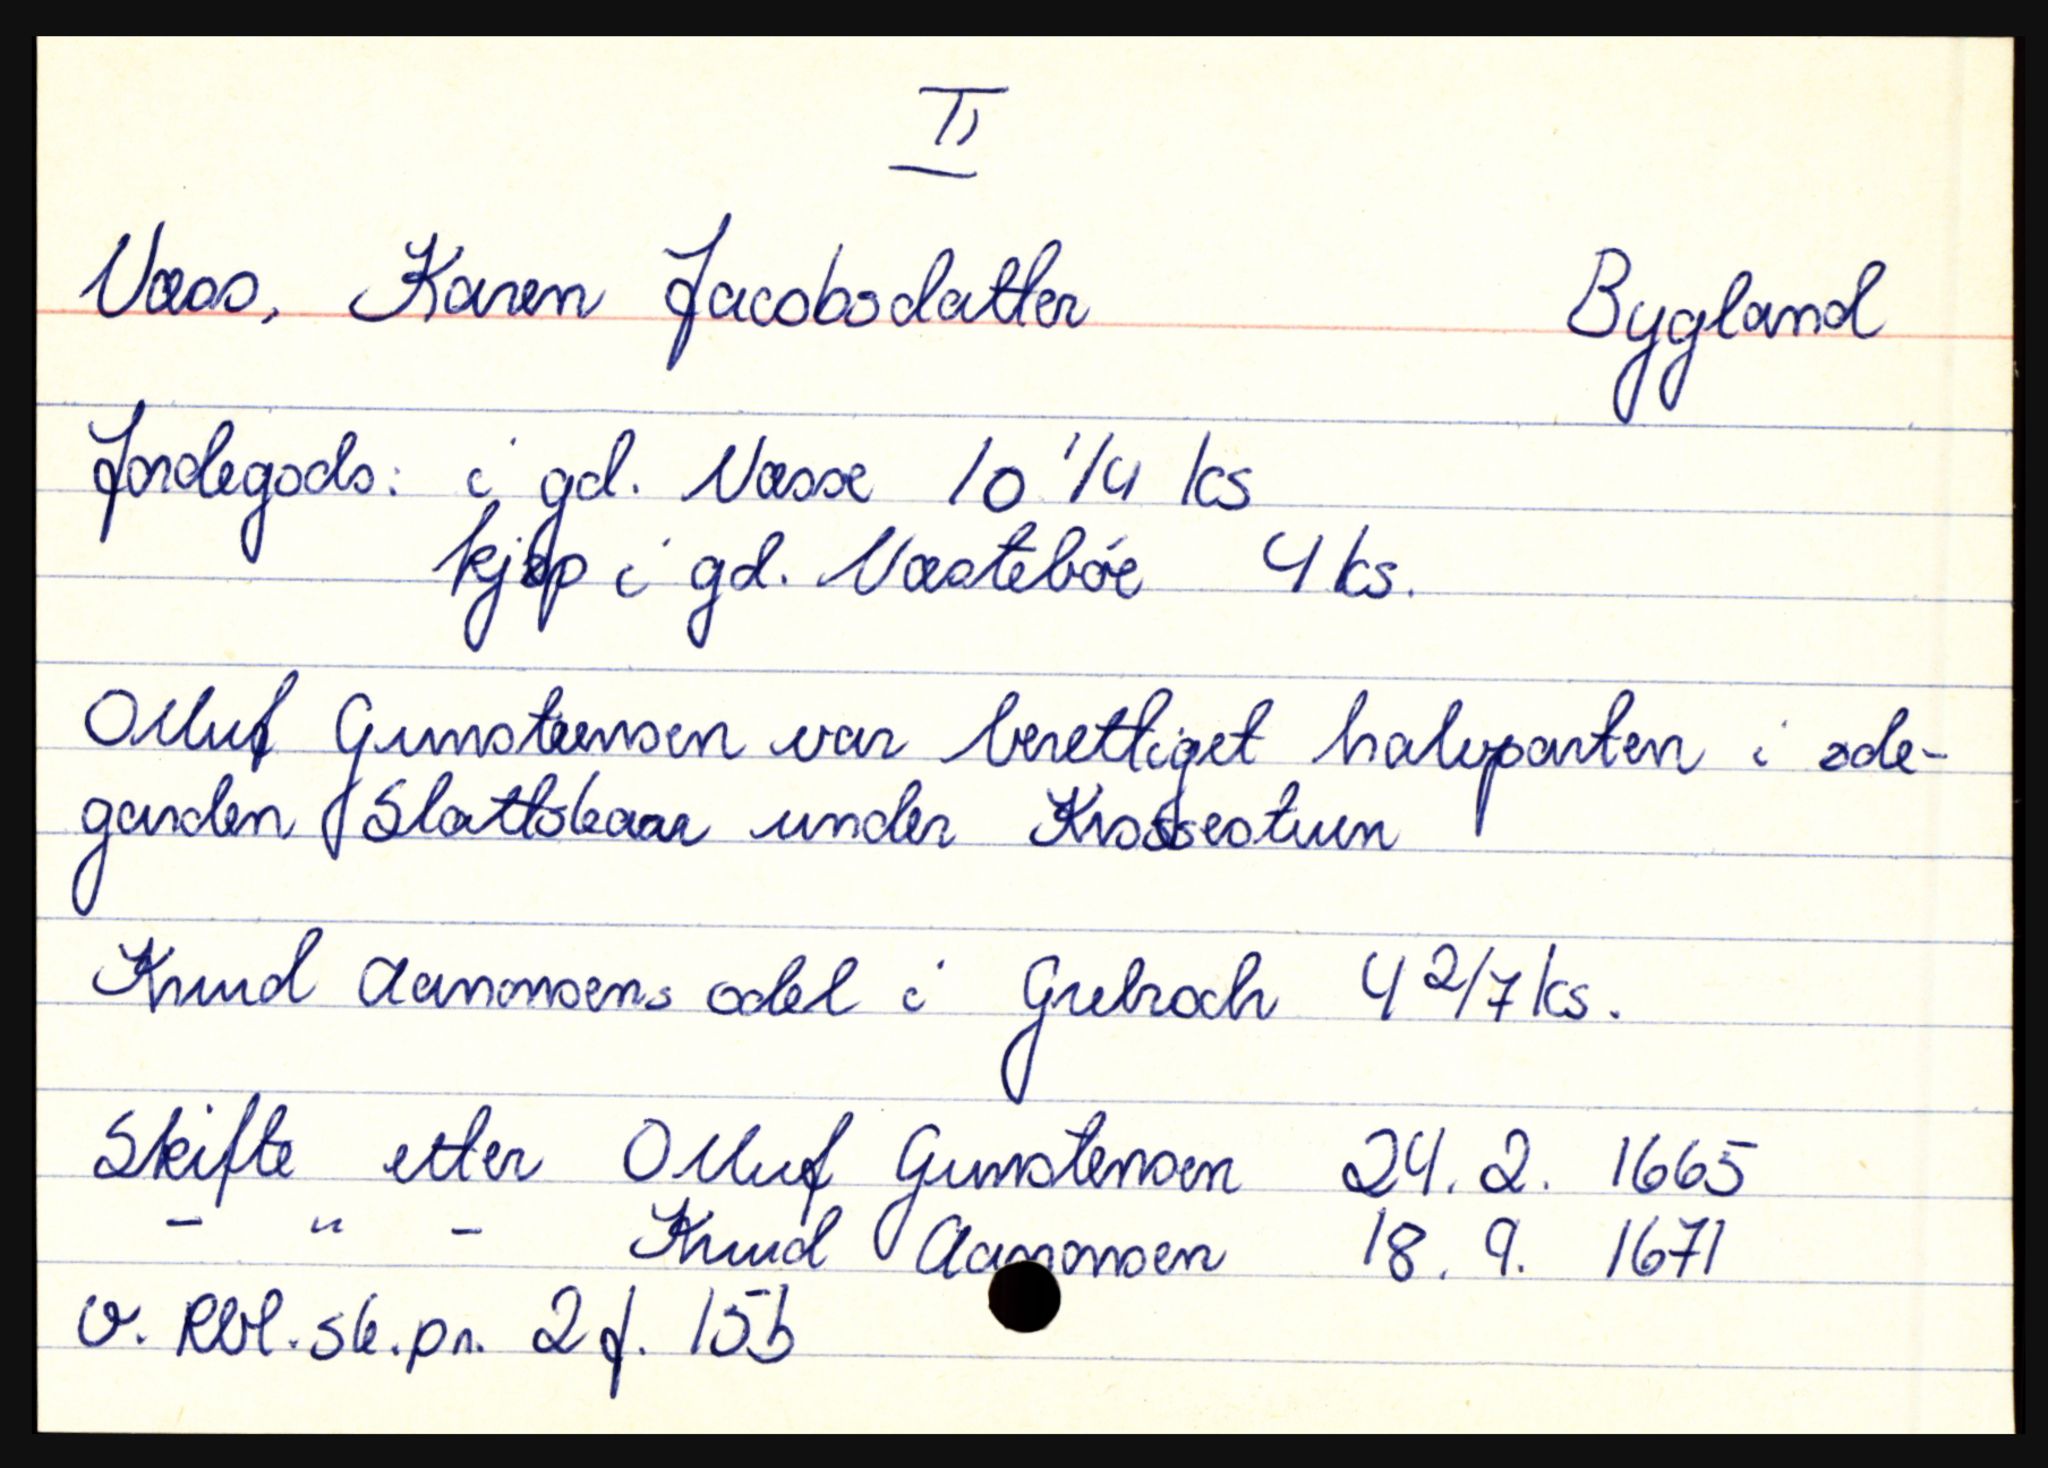 II
Næss, Karen Jacobsdatter Bygland
Jordegods: i gd. Næsse 10 1/4 ks
kjøp i gd. Næstebøe 4 ks.
Olluf Gunsteensen var berettiget halvparten i øde-
garden Slattskaar under Krossestuen
Knud Aanonsens odel i Grebroch 4 2/7 ks.
Skifte etter Olluf Gunstensen 24. 2. 1665
- " - Knud Aanonsen 18. 9. 1671
v. Rbl. sk. pr. 2 f. 15b